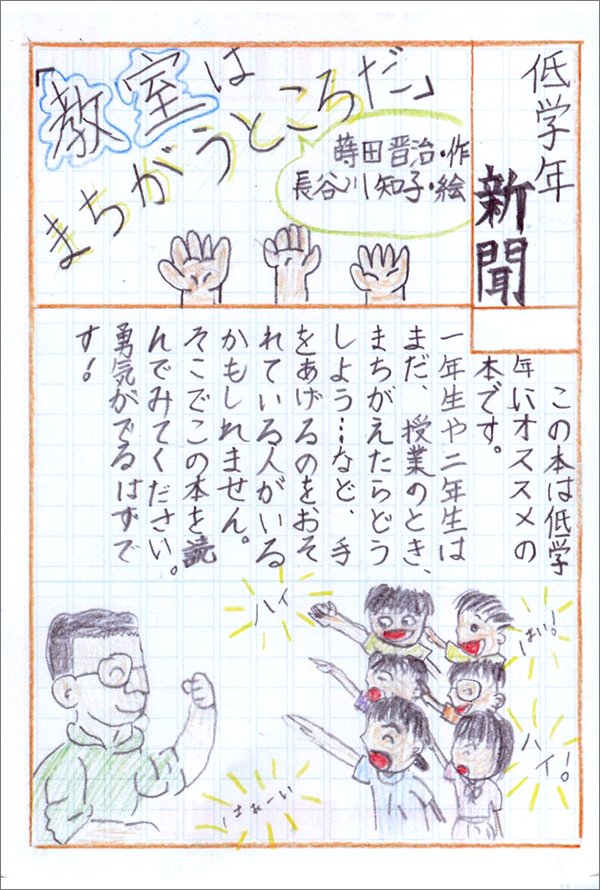 低学年
新聞
「教室は
まちがうところだ」
蒔田晋治・作
長谷川知子・絵
この本は低学
年にオススメの
本です。
一年生や二年生は
まだ、授業のとき、
まちがえたらどう
しよう…など、手
をあげるのをおそ
れている人がいる
かもしれません。
そこでこの本を読
んでみてください。
勇気がでるはずで
す!
ハイ
はい!
ハイ!
はぁーい